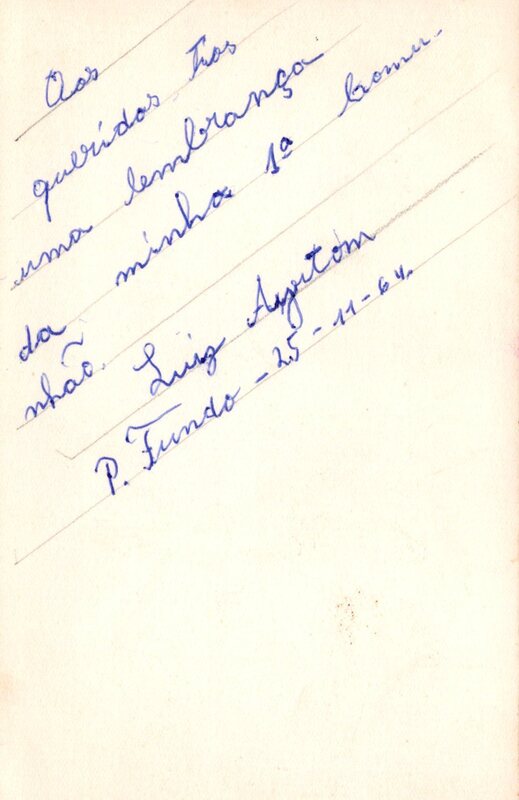 Aos
queridos tios
uma lembrança
da minha 1ª Comu-
nhão.
Luiz Ayrtom
P. Fundo - 25-11-64.